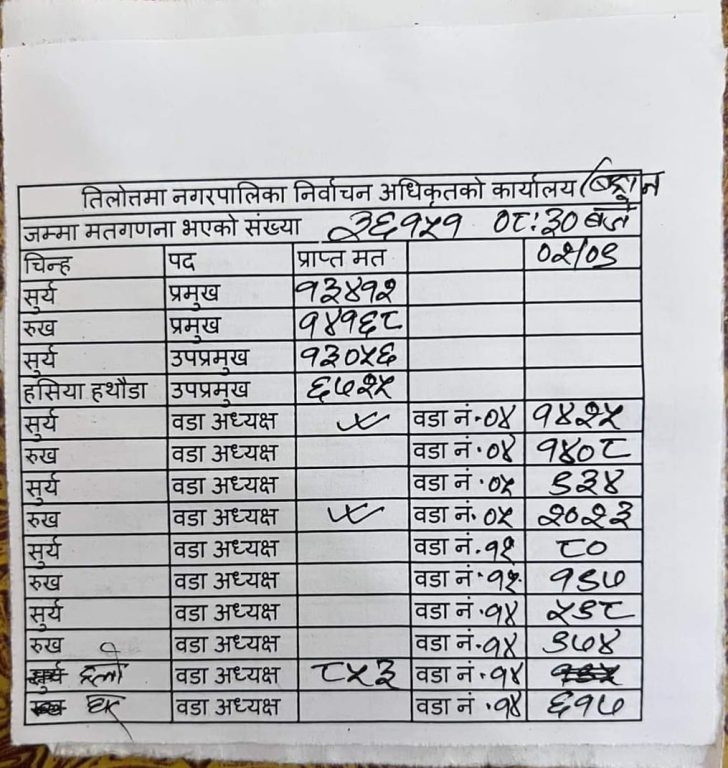 तिलोत्तमा नगरपालिका निर्वाचन अधिकृतको कार्यालय
जम्मा मतगणना भएको संख्या ३६१५१ ०८:३० बजे
चिन्ह पद प्राप्त मत ०२/०९
सुर्य प्रमुख १३४१२
रुख प्रमुख १४१६८
सुर्य उपप्रमुख १३०५६
हसिया हथौडा उपप्रमुख ६७२५
सुर्य वडा अध्यक्ष वडा नं.०४ १४२५
रुख वडा अध्यक्ष वडा नं.०४ १४०८
सुर्य वडा अध्यक्ष वडा नं.०५ ९३४
रुख वडा अध्यक्ष वडा नं.०५ २०२३
सुर्य वडा अध्यक्ष वडा नं.१२ ८०
रुख वडा अध्यक्ष वडा नं.१२ १९७
सुर्य वडा अध्यक्ष वडा नं.१४ ५९८
रुख वडा अध्यक्ष वडा नं.१४ ९७४
हलो वडा अध्यक्ष ८५३ वडा नं.१४
घर वडा अध्यक्ष वडा नं.१४ ६१७